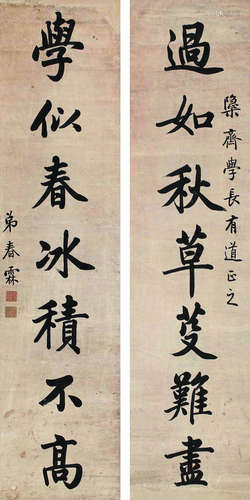 齋學長有道正之
過如秋草芟難盡
學似春冰積不高
弟春霖